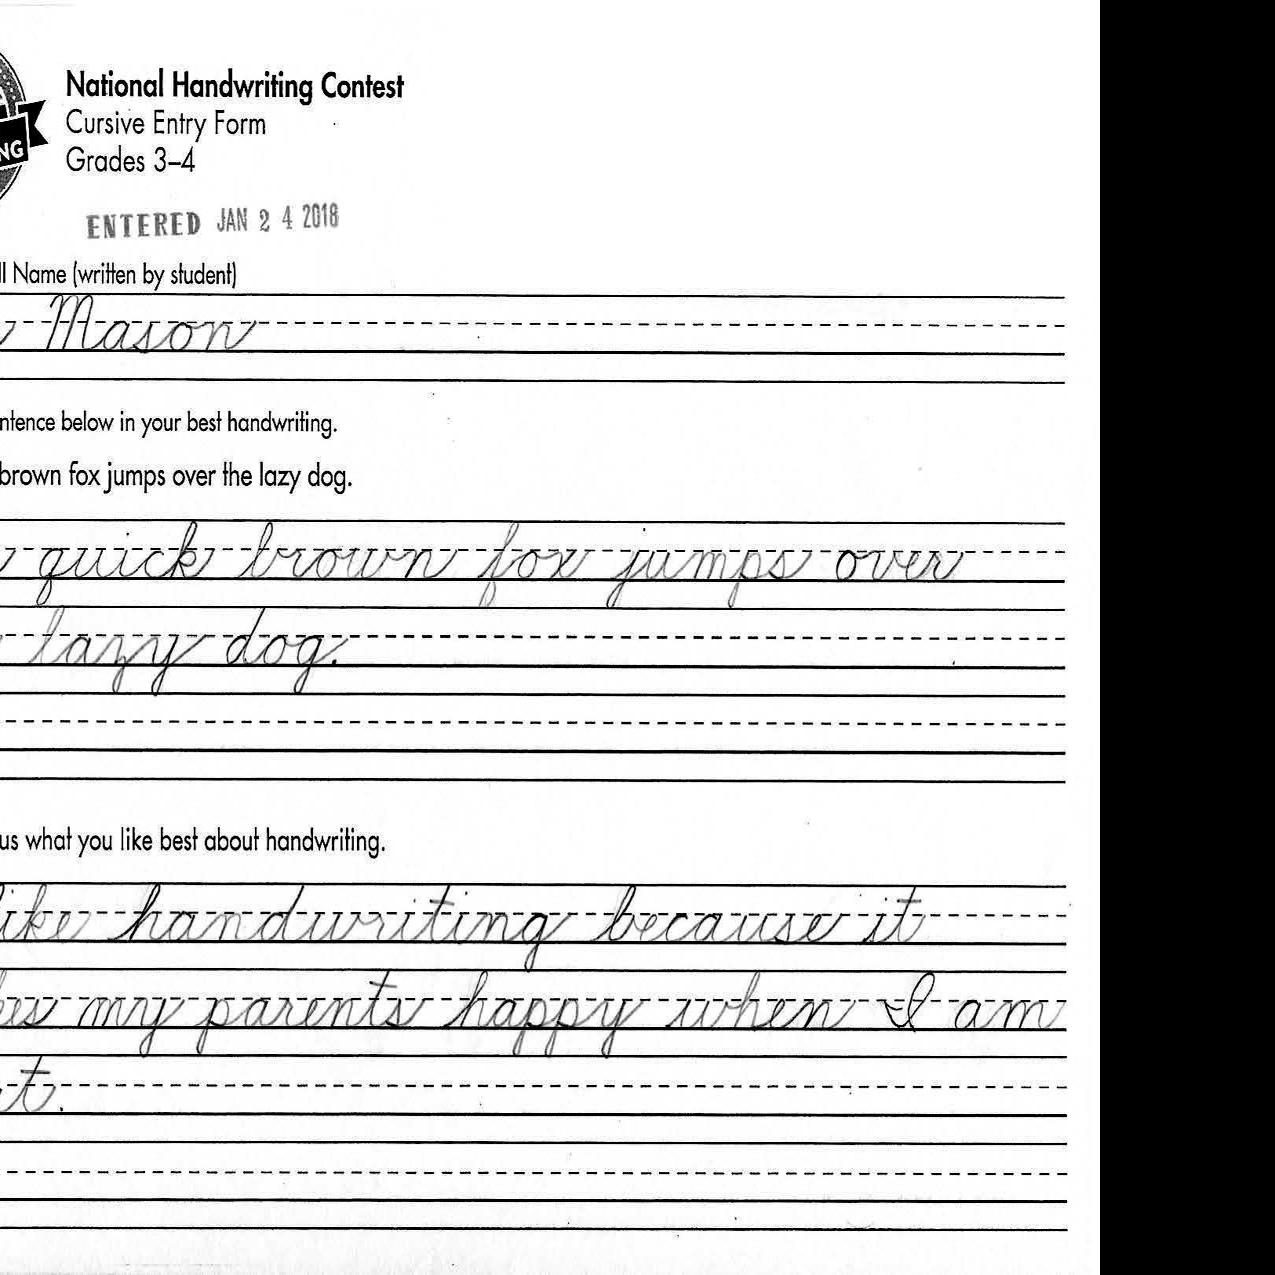 NG
National Handwriting Contest
Cursive Entry Form
Grades 3–4
ENTERED JAN 24 2018
Name (written by student)
Mason
below in your best handwriting.
brown fox jumps over the lazy dog.
quick brown fox jumps over
lazy dog.
us what you like best about handwriting.
handwriting because it
my parents happy when I am